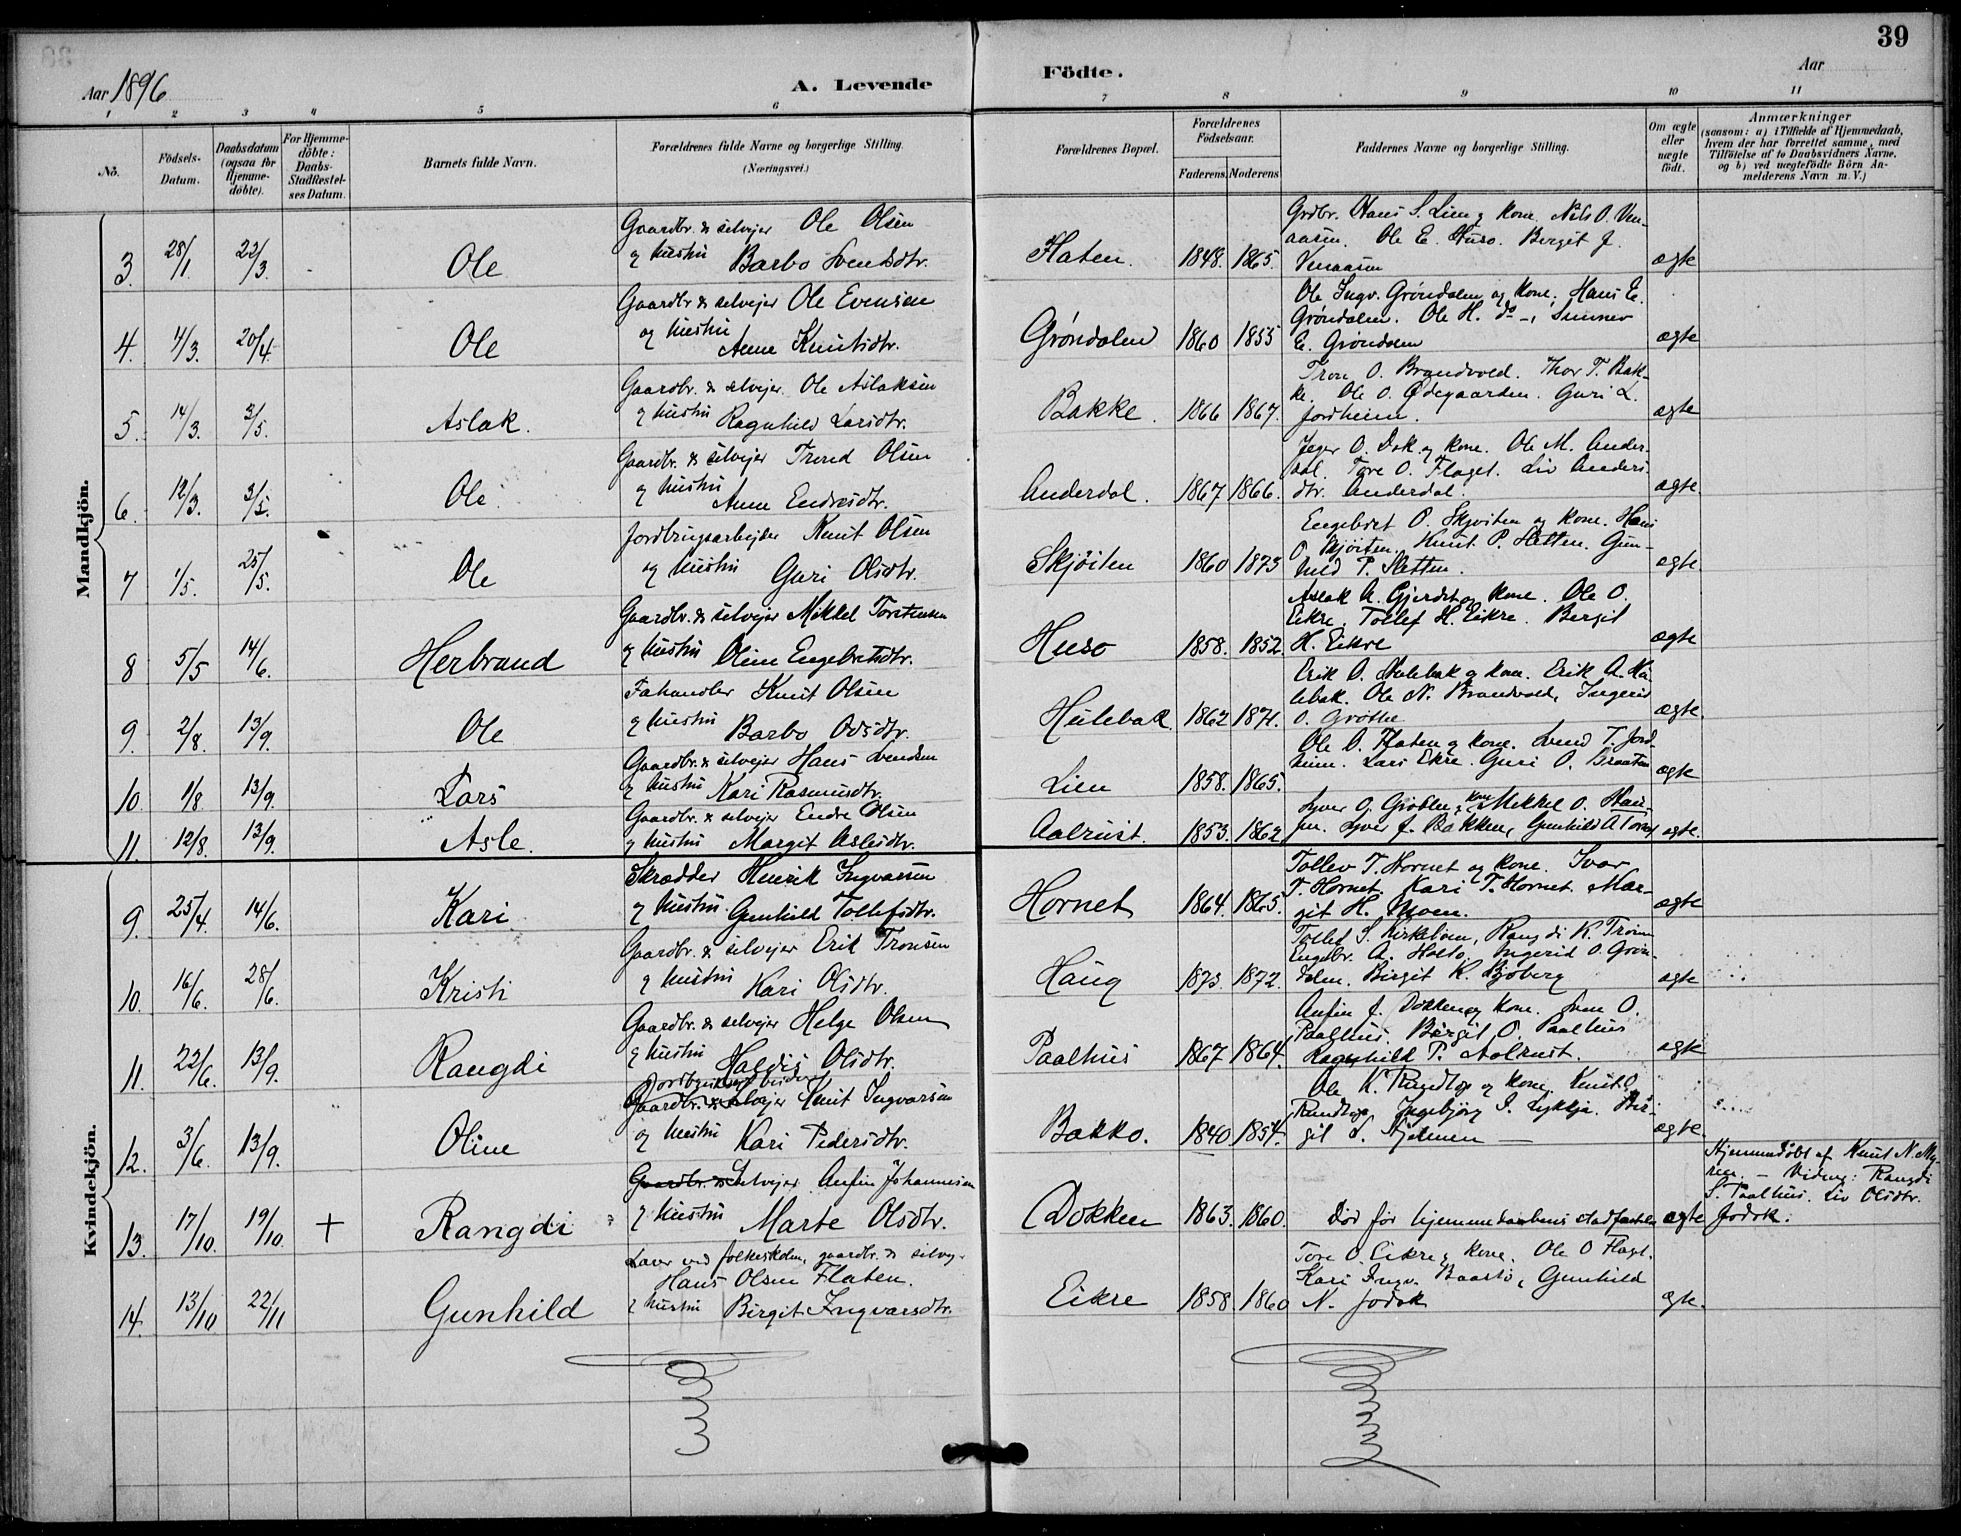 39
Aar 1896
A. Levende
Födte.
Aar
1 2 3 4 5 6 7 8 9 10 11
No.
Födsels-Datum.
Daabsdatum (ogsaa for Hjemme-döbte).
For Hjemme-döbte: Daabs-Stadfæstel-ses Datum.
Barnets fulde Navn.
Forældrenes fulde Navne og borgerlige Stilling.
(Næringsvei.)
Forældrenes Bopæl.
Forældrenes Födselsaar.
Faderens Moderens
Faddernes Navne og borgerlige Stilling.
Om ægte eller uægte født.
Anmærkninger
(saasom: a) i Tilfælde af Hjemmedaab, hvem der har forrettet samme, med Tilföielse af to Daabsvidners Navne, og b) ved uægtefödte Börn Anmelderens Navn m. V.)
Mandkjön.
Gaardbr. & selvejer Ole Olsen
3. 28/1 22/3. Ole
og hustru Barbo Svendsdtr.
Flaten. 1848. 1865.
Grdbr. Hans S. Lien og kone. Nils O. Ven-
aasen. Ole E. Huso. Bergit J.
Venaasen
ægte
Gaardbr. & selvejer Ole Evensen
4. 4/3. 20/4 Ole
og hustru Anne Knutsdtr.
Grøndalen 1860 1855
Ole Ingv. Grøndalen og kone. Hans E.
Grøndalen. Ole H. do -, Sunnev
E. Grøndalen
ægte
Gaardbr. & selvejer Ole Aslaksen
5. 14/3. 3/5. Aslak.
og hustru Ragnhild Larsdtr.
Bakke. 1866 1867.
Tron O. Brandvold. Thor T. Bak-
ke. Ole O. Ødegaarden. Guri L.
Jordheim.
ægte
Gaardbr. & selvejer Trond Olsen
6. 12/3. 3/5. Ole
og hustru Anne Endresdtr.
Anderdal. 1867 1866.
O. Dok og kone. Ole M. Ander-
dal. Tore O. Flaget. Liv Anders-
dtr. Anderdal.
ægte.
Jordbrugsarbejder Knut Olsen
7 1/5. 25/5. Ole
og hustru Guri Olsdtr.
Skjøiten 1860 1873
Engebret O. Skjøiten og kone. Hans
O. Skjøiten. Knut P. Sletten. Gun-
hild P. Sletten.
ægte
Gaardbr. & selvejer Mikkel Torstensen
8 5/5 14/6. Herbrand
og hustru Oline Engebretsdtr.
Huso 1858. 1852.
Aslak A. Gjerdet og kone. Ole O.
Eikre. Tollef H. Eikre. Bergit
H. Eikre
ægte
Fahandler Knut Olsen
9. 2/8. 13/9. Ole
og hustru Barbo Odsdtr.
Hulebak 1862 1871.
Erik O. Hulebak og kone. Erik A. Hu-
lebak. Ole N. Brandvold, Ingerid
O. Grøthe
ægte.
Gaardbr. & selvejer Hans Svendsen
10. 1/8. 13/9. Lars
og hustru Kari Rasmusdtr.
Lien 1858. 1865.
Ole O. Flaten og kone. Svend T. Jord-
heim. Lars Ekre. Guri O. Braaten
ægte
Gaardbr. & selvejer Endre Olsen
11. 12/8. 13/9. Asle.
og hustru Margit Aslesdtr.
Aalrust. 1853. 1862
Syver O. Grøthe og kone Mikkel O. Hau-
gen. Syver J. Bakken, Gunhild A.
ægte.
Kvindekjön.
Skrædder Henrik Ingvarsen
9. 25/4. 14/6. Kari
og hustru. Gunhild Tollefsdtr.
Hornet 1864. 1865.
Tollev T. Hornet og kone. Ivar
T. Hornet. Kari T. Hornet. Mar-
git H. Moen.
ægte
Gaardbr. & selvejer Erik Tronsen
10. 16/6. 28/6. Kristi
og hustru Kari Olsdtr.
Haug 1873. 1872.
Tollef S. Kirkebøen, Rangdi K. Trøim
Engebr. A. Holto, Ingerid O. Grøn-
dalen. Birgit K. Bjøberg
ægte
Gaardbr. & selvejer Helge Olsen
11. 22/6. 13/9. Rangdi
og hustru Haldis Olsdtr.
Paalhus 1867 1864.
Anfin J. Dokken og kone. Sven O.
Paalhus. Birgit O. Paalhus
Ragnhild P. Aalrust.
ægte
Jordbrugsarbeider
Gaardbr. & selvejer Knut Ingvarsen
12. 3/6. 13/9. Oline
og hustru Kari Pedersdtr.
Bakko. 1840 1854.
Ole K. Rundtop og kone, Knut O.
Rundtop, Ingebjørg I. Lykkja. Bir-
git S. Hjelmen —
ægte.
Gaardbr. & Selvejer Anfin Johannesen
13. 17/10. 19/10. + Rangdi
og hustru Marte Olsdtr.
Dokken 1863. 1860.
Død før hjemmedaabens stadfæstelse
ægte
Hjemmedøbt af Knut N. My-
ren. — Vidner: Rangdi
S. Paalhus. Liv Olsdtr.
Jodok.
Lærer ved folkeskolen, gaardbr. & selvej.
Hans Olsen Flaten.
14. 13/10 22/11 Gunhild
og hustru Birgit Ingvarsdtr.
Eikre 1858 1860
Tore O. Eikre og kone. Ole O Flaget.
Kari Ingv. Baastø, Gunhild
N. Jodok
ægte.